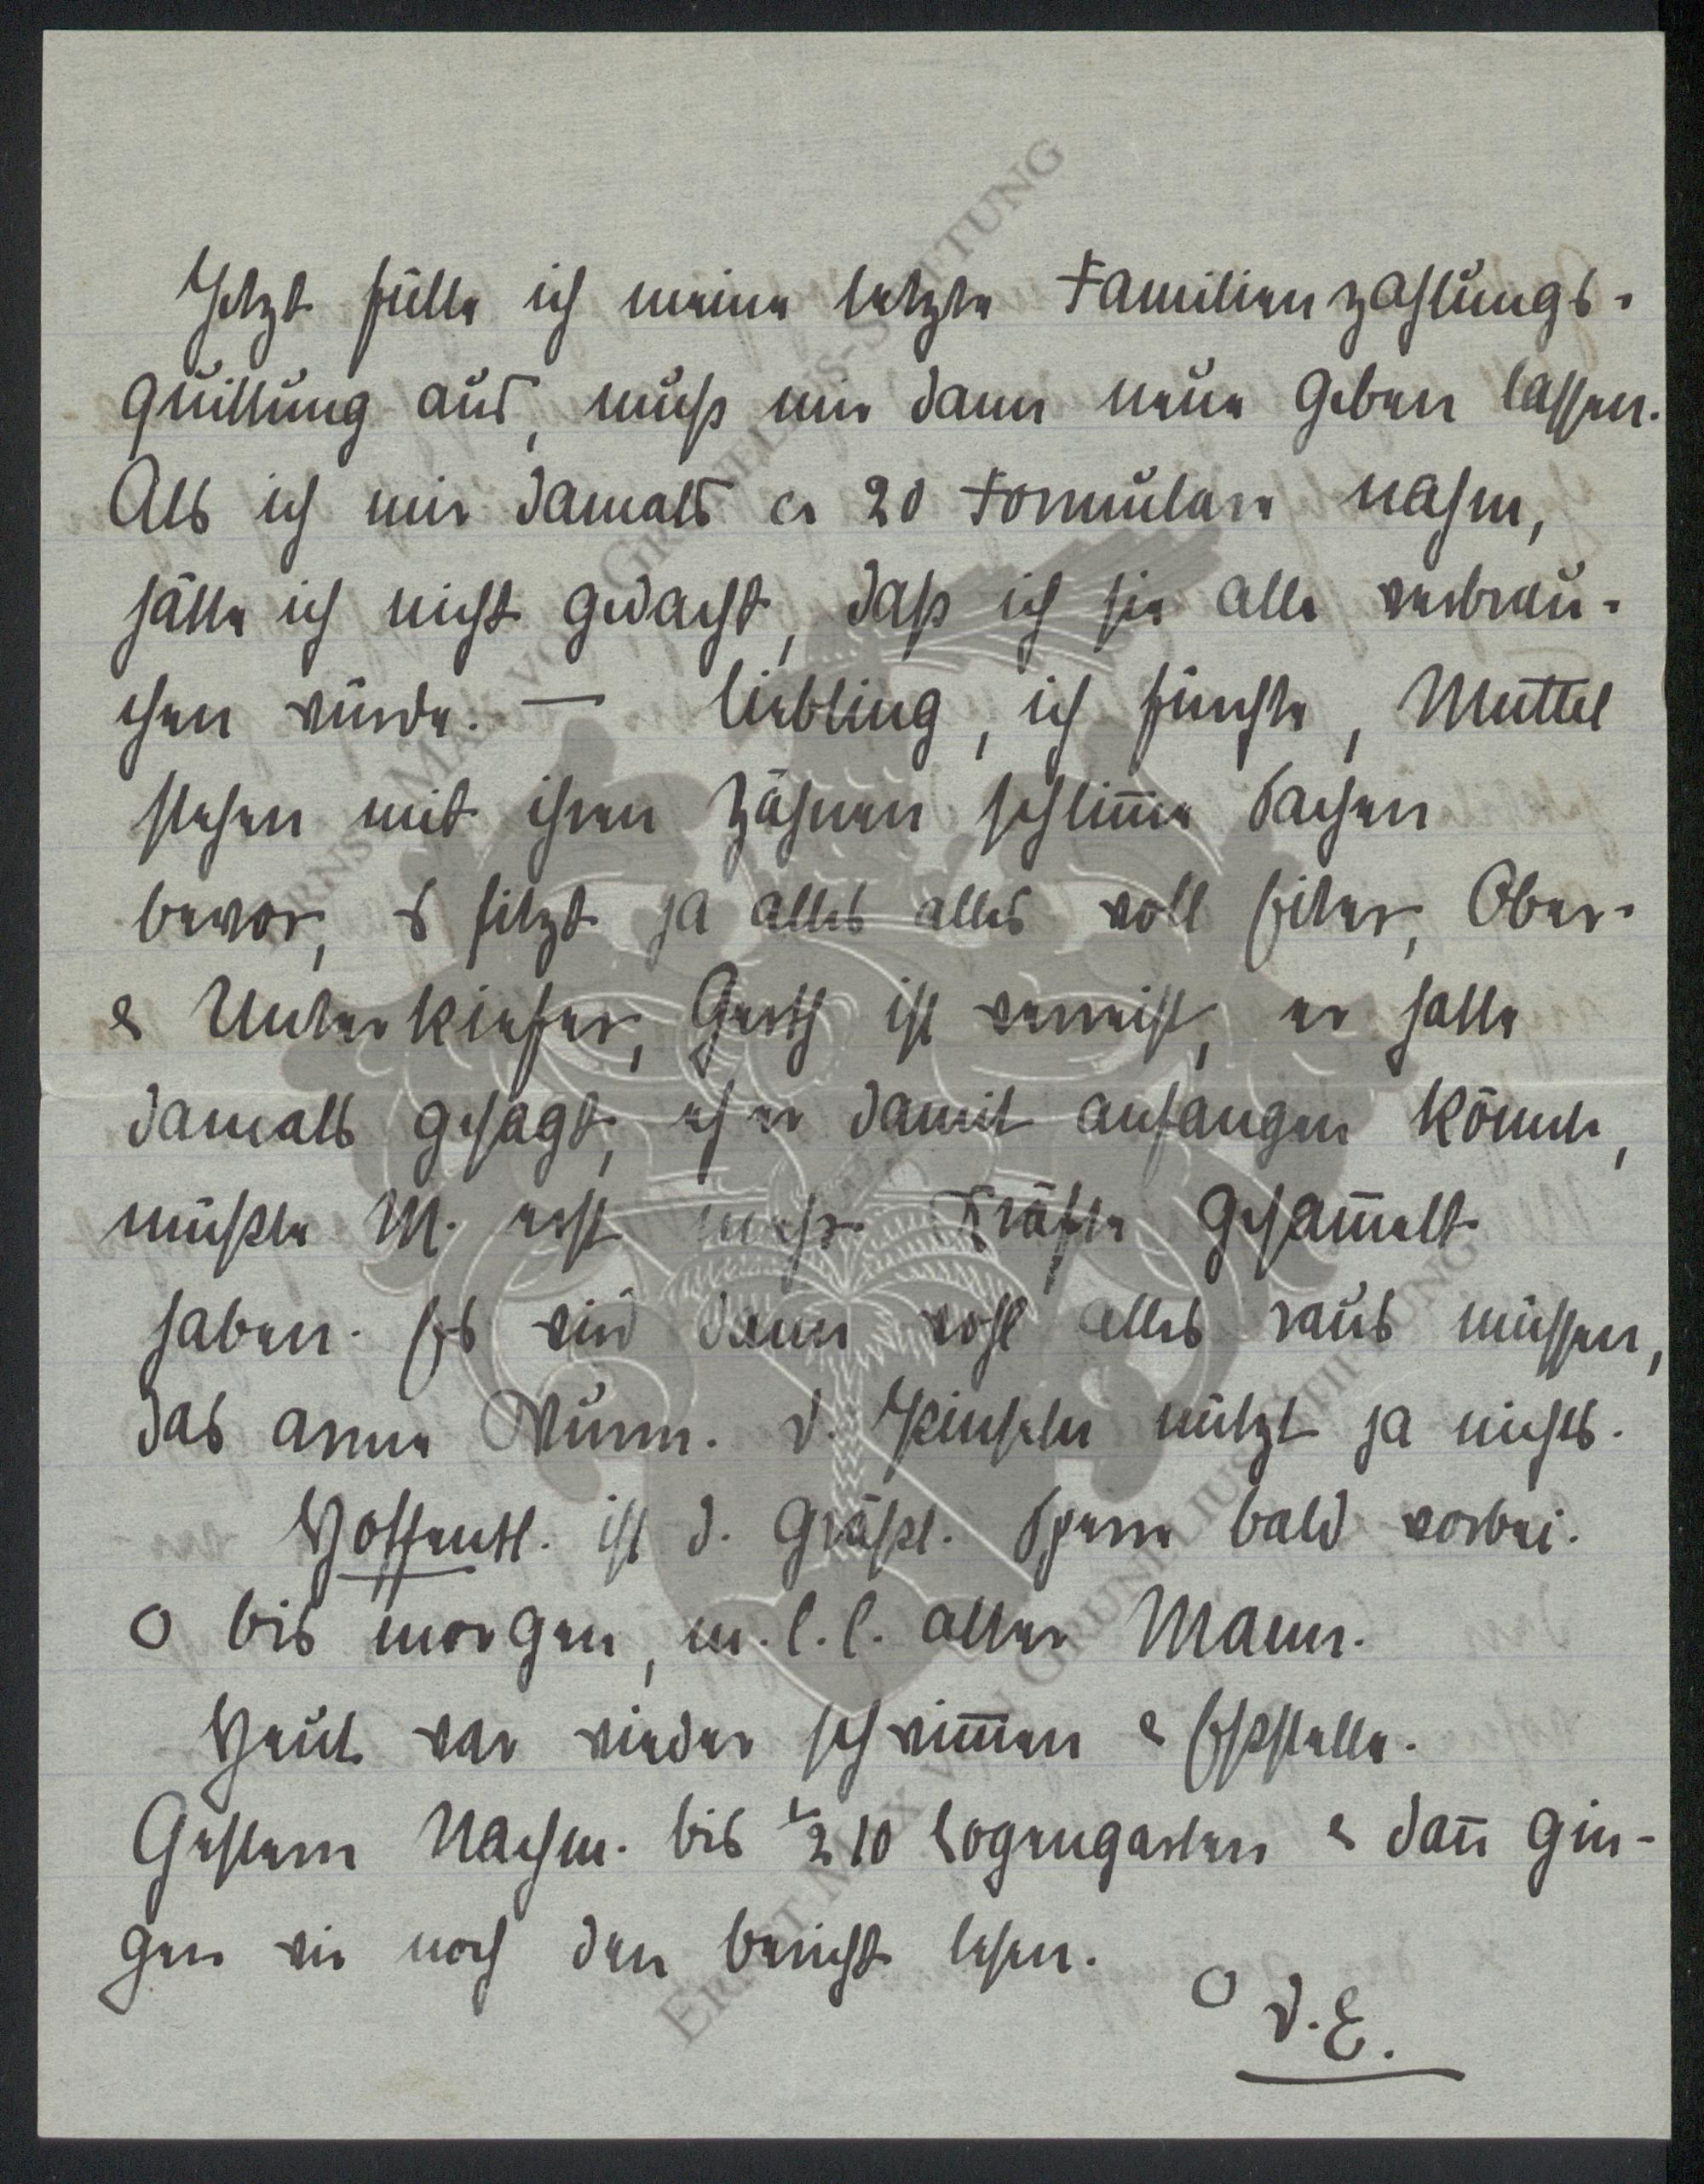 Jetzt fülle ich meine letzte Familienzahlungs-
quittung aus, muß mir dann neue geben lassen.
Als ich mir damals ca 20 Formulare nahm,
hätte ich nicht gedacht, daß ich sie alle verbrau-
chen würde. — Liebling, ich fürchte, Muttel
stehen mit ihren Zähnen schlim̅e Sachen
bevor, es sitzt ja alles alles voll Eiter, Ober-
& Unterkiefer, Gerth ist verreist, er hatte
damals gesagt, eh er damit anfangen könnte,
müßte M. erst mehr Kräfte gesam̅elt
haben. Es wird dann wohl alles raus müssen,
das arme Wurm. D. Pinseln nützt ja nichts.
Hoffentl. ist d. gräßl. Sperre bald vorbei.
O bis morgen, m. l. l. alter Mann.
Heute war wieder schwim̅en & Eßstelle.
Gestern Nachm. bis ½ 10 Logengarten & dan̅ gin-
gen wir noch den Bericht lesen.
O D. E.
ERNST MAX VON GRUNELIUS-STIFTUNG
ERNST MAX VON GRUNELIUS-STIFTUNG